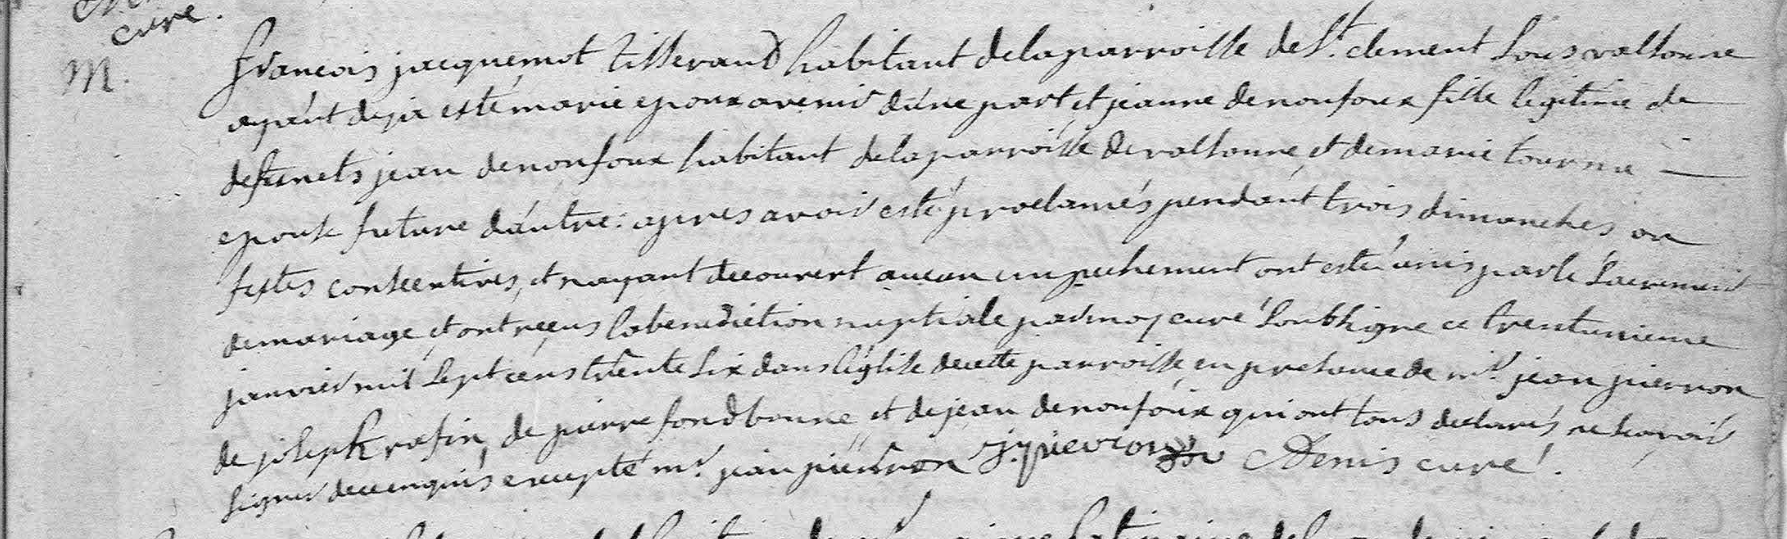 cure.
M.
françois jacquemot tisserand habitant de la parroisse de St. clement sous valsonne
ayant deja esté marie epoux avenir d'une part et jeanne denonfoux fille legitime de
defunets jean denonfoux habitant de la parroisse de valsonne, et de marie tourna
epouse future d'autre: apres avoir esté proclamés pendant trois dimanches ou
festes consecutives, et n'ayant decouvert aucun empechement ont esté unis par le sacrement
de mariage, et ont reçus la benediction nuptiale par moy curé soubsigné ce trentunieme
janvier mil sept cens trente six dans l'église de cette parroisse, en presance de mr. jean pierron
de joseph rafin, de pierre fondbonne et de jean denonfoux qui ont tous declarés ne sçavoir
signer de ce enquis excepté mr. jean pierron J. pierron Denis curé.